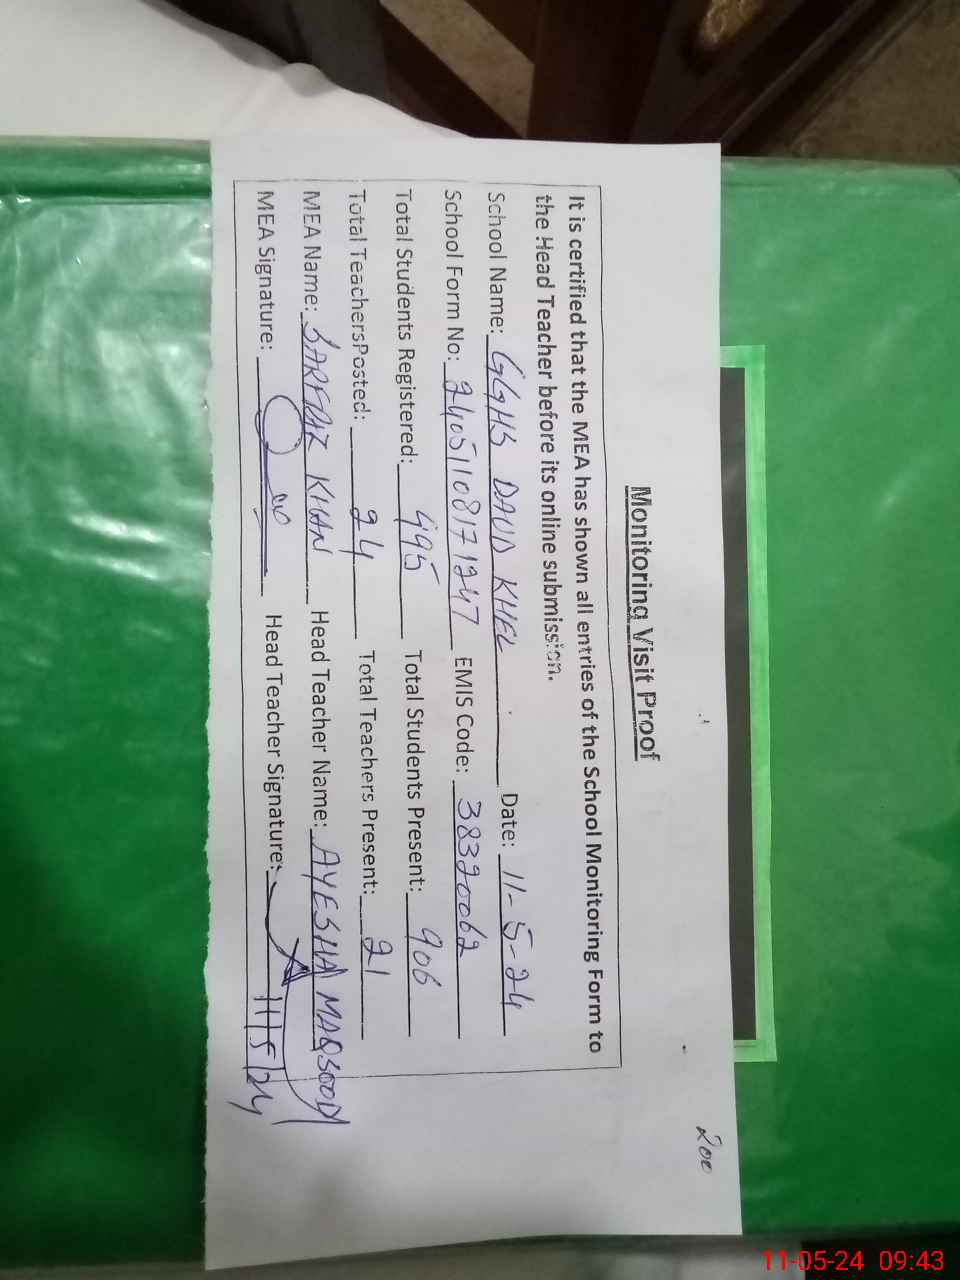 200
Monitoring Visit Proof
It is certified that the MEA has shown all entries of the School Monitoring Form to
the Head Teacher before its online submission.
School Name: GGHS DAUD KHEL Date: 11-5-24
School Form No: 24051108171247 EMIS Code: 38320062
Total Students Registered: 995 Total Students Present: 906
Total TeachersPosted: 24 Total Teachers Present: 21
MEA Name: SARFRAZ KHAN Head Teacher Name: AYESHA MAQSOOD
MEA Signature: Head Teacher Signature: 11/5/24
11-05-24 09:43